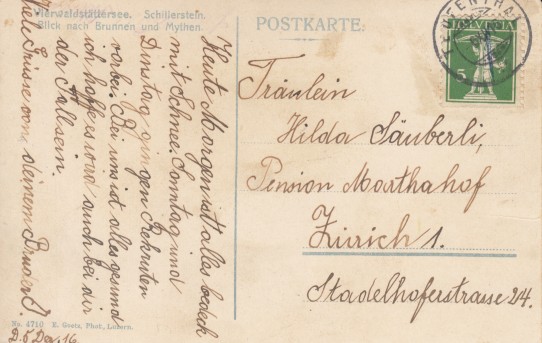 Vierwaldstättersee. Schillerstein.
Blick nach Brunnen und Mythen.
POSTKARTE.
HELVETIA
Fräulein
Hilda Säuberli,
Pension Marthahof
Zürich 1.
Stadelhoferstrasse 24.
Heute Morgen ist alles bedeckt
mit Schnee. Sonntag und
Dinstag gingen Rekruten
vorbei. Bei uns ist alles gesund
ich hoffe es wird auch bei dir
der Fall sein.
Viele Grüsse von deinem Bruder
No. 4710 E. Goetz, Phot., Luzern.
D. 5 Dez. 16